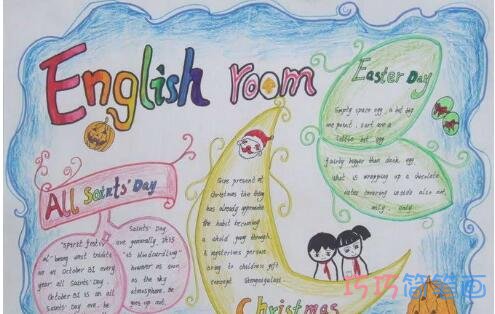 English room
Easter Day
Empty space egg is but big
one point, sort are a
little bit egg
fairly bigger than duck egg
What is wrapping up a chocolate
outer covering inside also are
only
All Saints' Day
"spirit festiv
al" being west tradite
on at October 31 every
year all Saints' Day.
October 31 is an all
Saints' Day eve, be
Saints' Day
are generally this
is
however as soon
as the sky
atmosphere, be
goes out,
Give present at
Christmas the time
has already appeare
the habit becoming
a child pang through,
A mysterious person
bring to children gift
concept
Christmas
巧巧简笔画